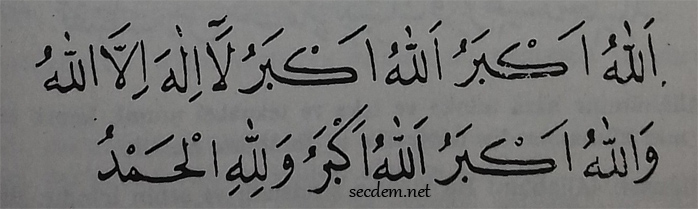 اَللّٰهُ اَكْبَرُ اَللّٰهُ اَكْبَرُ لَٓا اِلٰهَ اِلَّا اللّٰهُ
وَاللّٰهُ اَكْبَرُ اَللّٰهُ اَكْبَرُ وَلِلّٰهِ الْحَمْدُ
secdem.net